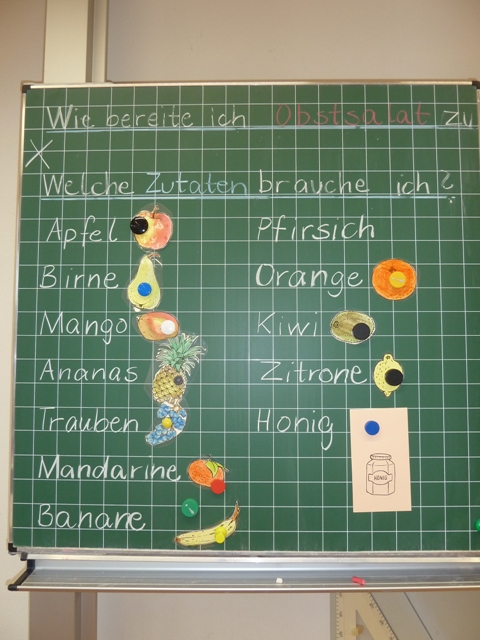 Wie bereite ich Obstsalat zu
Welche Zutaten brauche ich?
Apfel
Birne
Mango
Ananas
Trauben
Mandarine
Banane
Pfirsich
Orange
Kiwi
Zitrone
Honig
HONIG